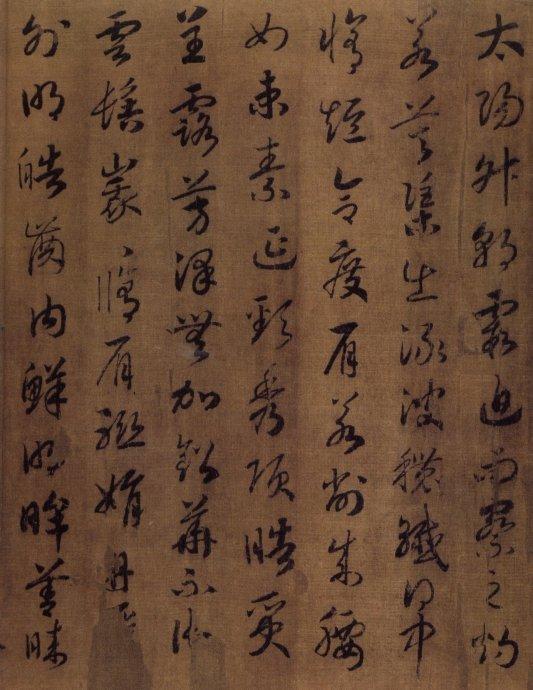 太陽升朝霞迫而察之灼
若芙蕖出淥波穠纖得中
脩短合度肩若削成腰
如束素延頸秀項皓質
呈露芳澤無加鉛華不御
雲髻峩〻脩眉聯娟丹唇
外朗皓齒內鮮明眸善睞